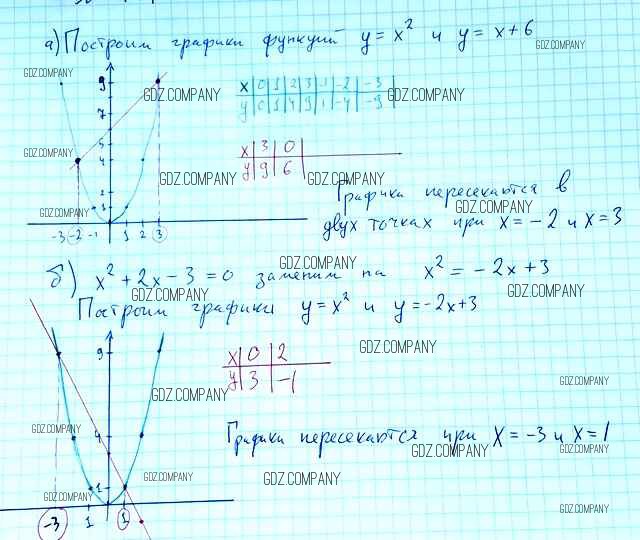 а) Построим графики функций y = x² и y = x + 6
GDZ.COMPANY
GDZ.COMPANY
GDZ.COMPANY
GDZ.COMPANY
9
7
5
4
2
1
x 0 1 2 3 -1 -2 -3
y 0 1 4 9 1 -4 -9
GDZ.COMPANY
x 3 0
y 9 6
GDZ.COMPANY
GDZ.COMPANY
Графики пересекаются в
GDZ.COMPANY
GDZ.COMPANY
двух точках при x = -2 и x = 3
-3 -2 -1 1 2 3
GDZ.COMPANY
б) x² + 2x - 3 = 0 заменим на x² = -2x + 3
GDZ.COMPANY
GDZ.COMPANY
Построим графики y = x² и y = -2x + 3
9
4
1
x 0 2
y 3 -1
GDZ.COMPANY
GDZ.COMPANY
GDZ.COMPANY
GDZ.COMPANY
Графики пересекаются при x = -3 и x = 1
GDZ.COMPANY
GDZ.COMPANY
GDZ.COMPANY
GDZ.COMPANY
GDZ.COMPANY
GDZ.COMPANY
-3 1 1